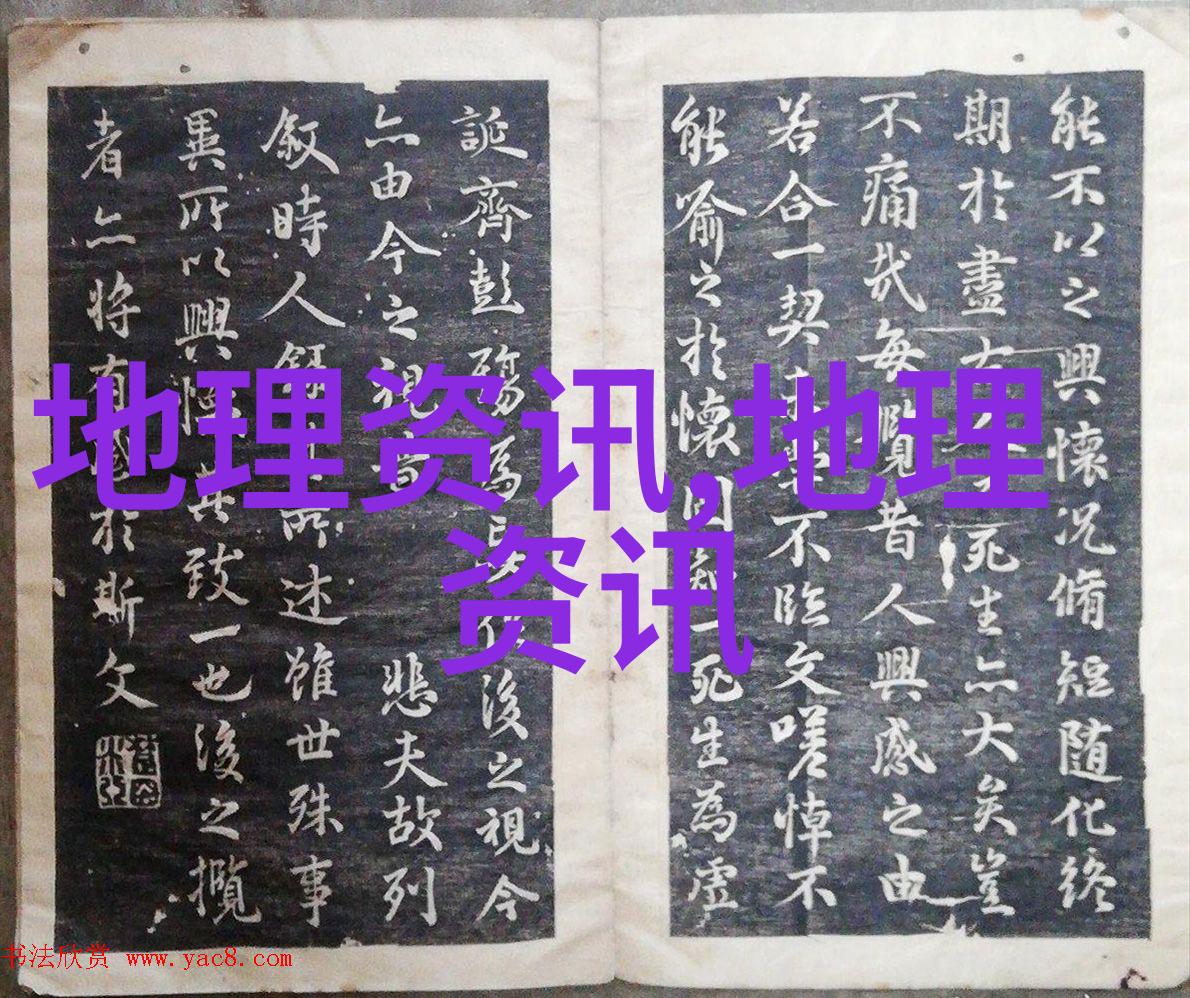 能不以之興懷況脩短随化終
期於盡死生亦大矣豈
不痛哉每覽昔人興感之由
若合一契不臨文嗟悼不
能喻之於懷一死生為虛
誕齊彭殤為後之視今
亦由今之視昔悲夫故列
叙時人所述雖世殊事
異所以興懷其致一也後之攬
者亦將有感於斯文
地理资讯,地理
资讯
书法欣赏 www.yac8.com